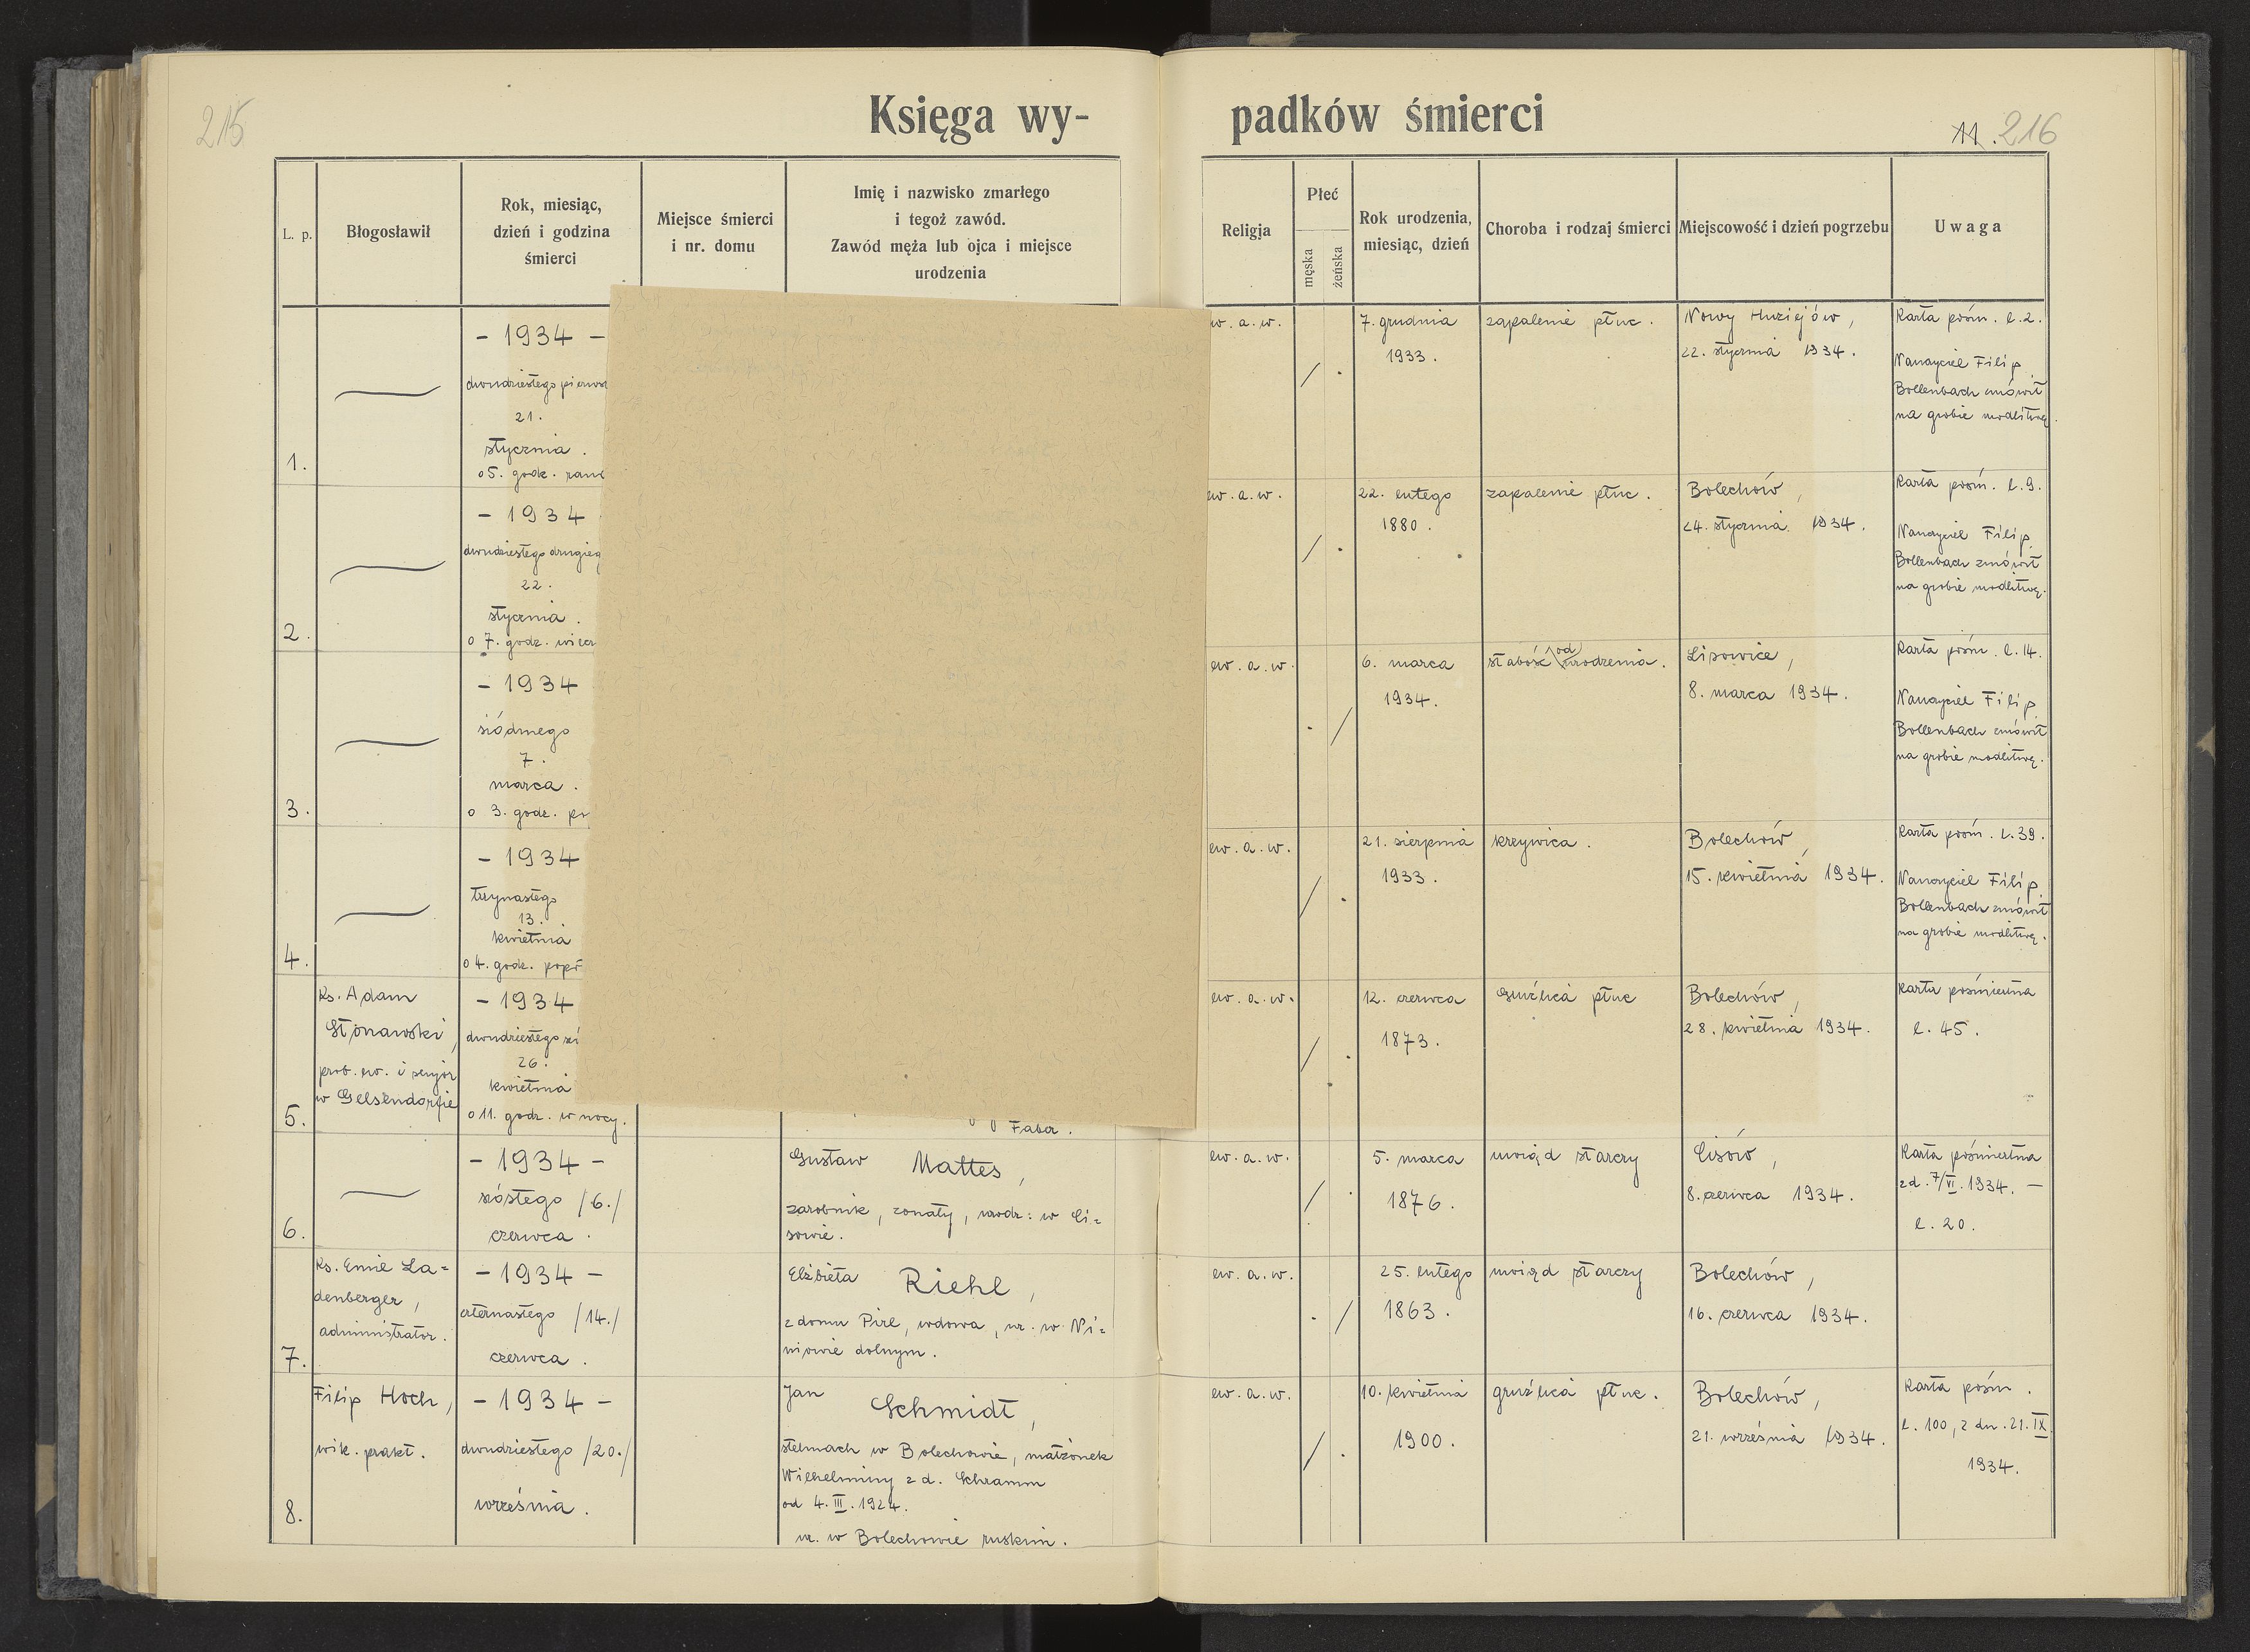 215
Księga wy-
padków śmierci
11. 216
L. p.
Błogosławił
Rok, miesiąc,
dzień i godzina
śmierci
Miejsce śmierci
i nr. domu
Imię i nazwisko zmarłego
i tegoż zawód.
Zawód męża lub ojca i miejsce
urodzenia
Religja
Płeć
męska
żeńska
Rok urodzenia,
miesiąc, dzień
Choroba i rodzaj śmierci
Miejscowość i dzień pogrzebu
Uwaga
1.
- 1934 -
dwudziestego pierwsz
21.
stycznia.
o 5. godz. rano
ew. a. w.
7. grudnia
1933.
zapalenie płuc.
Nowy Huziejów,
22. stycznia 1934.
Karta pośm. l. 2.
Nauczyciel Filip
Bollenbach zmówił
na grobie modlitwę.
2.
- 1934
dwudziestego drugieg
22.
stycznia.
o 7. godz. wiecz
ew. a. w.
22. lutego
1880.
zapalenie płuc.
Bolechów,
24. stycznia 1934.
Karta pośm. l. 9.
Nauczyciel Filip
Bollenbach zmówił
na grobie modlitwę.
3.
- 1934
siódmego
7.
marca.
o 3. godz. po
ew. a. w.
6. marca
1934.
słabość od urodzenia.
Lisowice,
8. marca 1934.
Karta pośm. l. 14.
Nauczyciel Filip
Bollenbach zmówił
na grobie modlitwę.
4.
- 1934
trzynastego
13.
kwietnia
o 4. godz. popoł
ew. a. w.
21. sierpnia
1933.
krzywica.
Bolechów,
15. kwietnia 1934.
Karta pośm. l. 39.
Nauczyciel Filip
Bollenbach zmówił
na grobie modlitwę.
5.
Ks. Adam
Stonawski,
prob. ew. i senjor
w Gelsendorfie
- 1934
dwudziestego
26.
kwietnia
o 11. godz. w nocy.
Faber.
ew. a. w.
12. czerwca
1873.
gruźlica płuc
Bolechów,
28. kwietnia 1934.
Karta pośmiertna
l. 45.
6.
- 1934 -
szóstego /6./
czerwca.
Gustaw Mattes,
zarobnik, żonaty, urodz: w Li=
sowie.
ew. a. w.
5. marca
1876.
uwiąd starczy
Lisów,
8. czerwca 1934.
Karta pośmiertna
z d. 7/VI. 1934. -
l. 20.
7.
Ks. Emil La=
denberger,
administrator.
- 1934 -
czternastego /14./
czerwca.
Elżbieta Riehl,
z domu Pirl, wdowa, ur. w Ni=
niowie dolnym.
ew. a. w.
25. lutego
1863.
uwiąd starczy
Bolechów,
16. czerwca 1934.
8.
Filip Hoch,
wik. prakt.
- 1934 -
dwudziestego /20./
września.
Jan Schmidt,
stelmach w Bolechowie, małżonek
Wilhelminy z d. Schramm
od 4. III. 1924.
ur. w Bolechowie ruskim.
ew. a. w.
10. kwietnia
1900.
gruźlica płuc.
Bolechów,
21. września 1934.
Karta pośm.
l. 100, z dn. 21. IX.
1934.